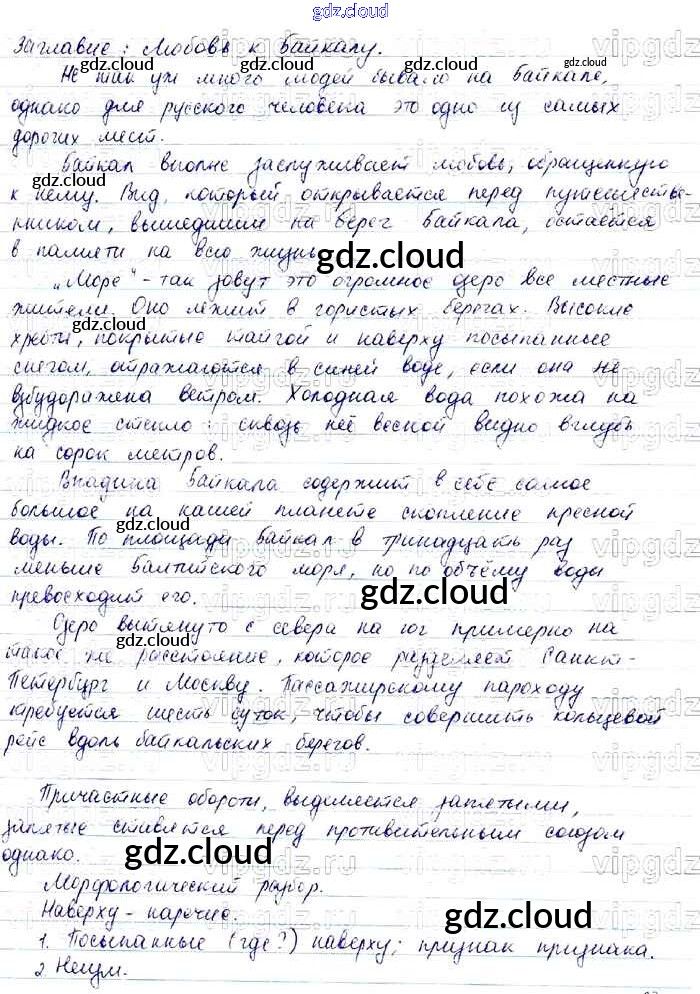 gdz.cloud
Заглавие: Любовь к Байкалу.
Не так уж много людей бывало на Байкале,
однако для русского человека это одно из самых
дорогих мест.
Байкал вполне заслуживает любовь, обращенную
к нему. Вид, который открывается перед путешестве-
нником, вышедшим на берег Байкала, остаётся
в памяти на всю жизнь.
„Море" - так зовут это огромное озеро все местные
жители. Оно лежит в гористых берегах. Высокие
хребты, покрытые тайгой и наверху посыпанные
снегом, отражаются в синей воде, если она не
взбудоражена ветром. Холодная вода похожа на
жидкое стекло: сквозь неё весной видно вглубь
на сорок метров.
Впадина Байкала содержит в себе самое
большое на нашей планете скопление пресной
воды. По площади Байкал в тринадцать раз
меньше Балтийского моря, но по объёму воды
превосходит его.
Озеро вытянуто с севера на юг примерно на
такое же расстояние, которое разделяет Санкт-
Петербург и Москву. Пассажирскому пароходу
требуется шесть суток, чтобы совершить кольцевой
рейс вдоль байкальских берегов.
Причастные обороты, выделяется запятыми,
запятые ставятся перед противительным союзом
однако.
Морфологический разбор.
Наверху - наречие.
1. Посыпанные (где?) наверху; признак признака.
2. Неизм.